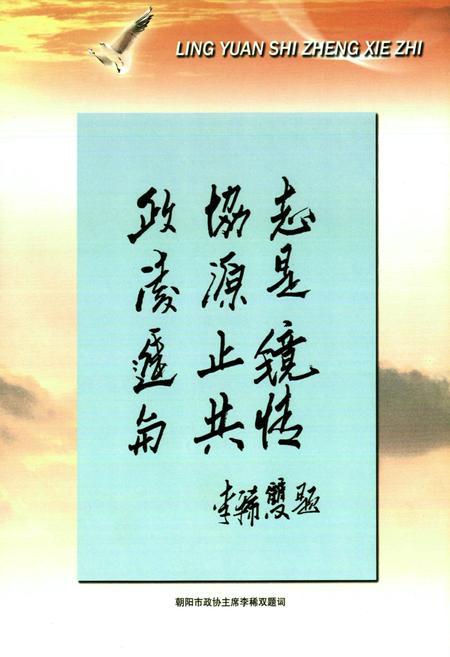 LING YUAN SHI ZHENG XIE ZHI
政協志
凌源是
止鏡
共情
李稀雙題
朝阳市政协主席李稀双题词